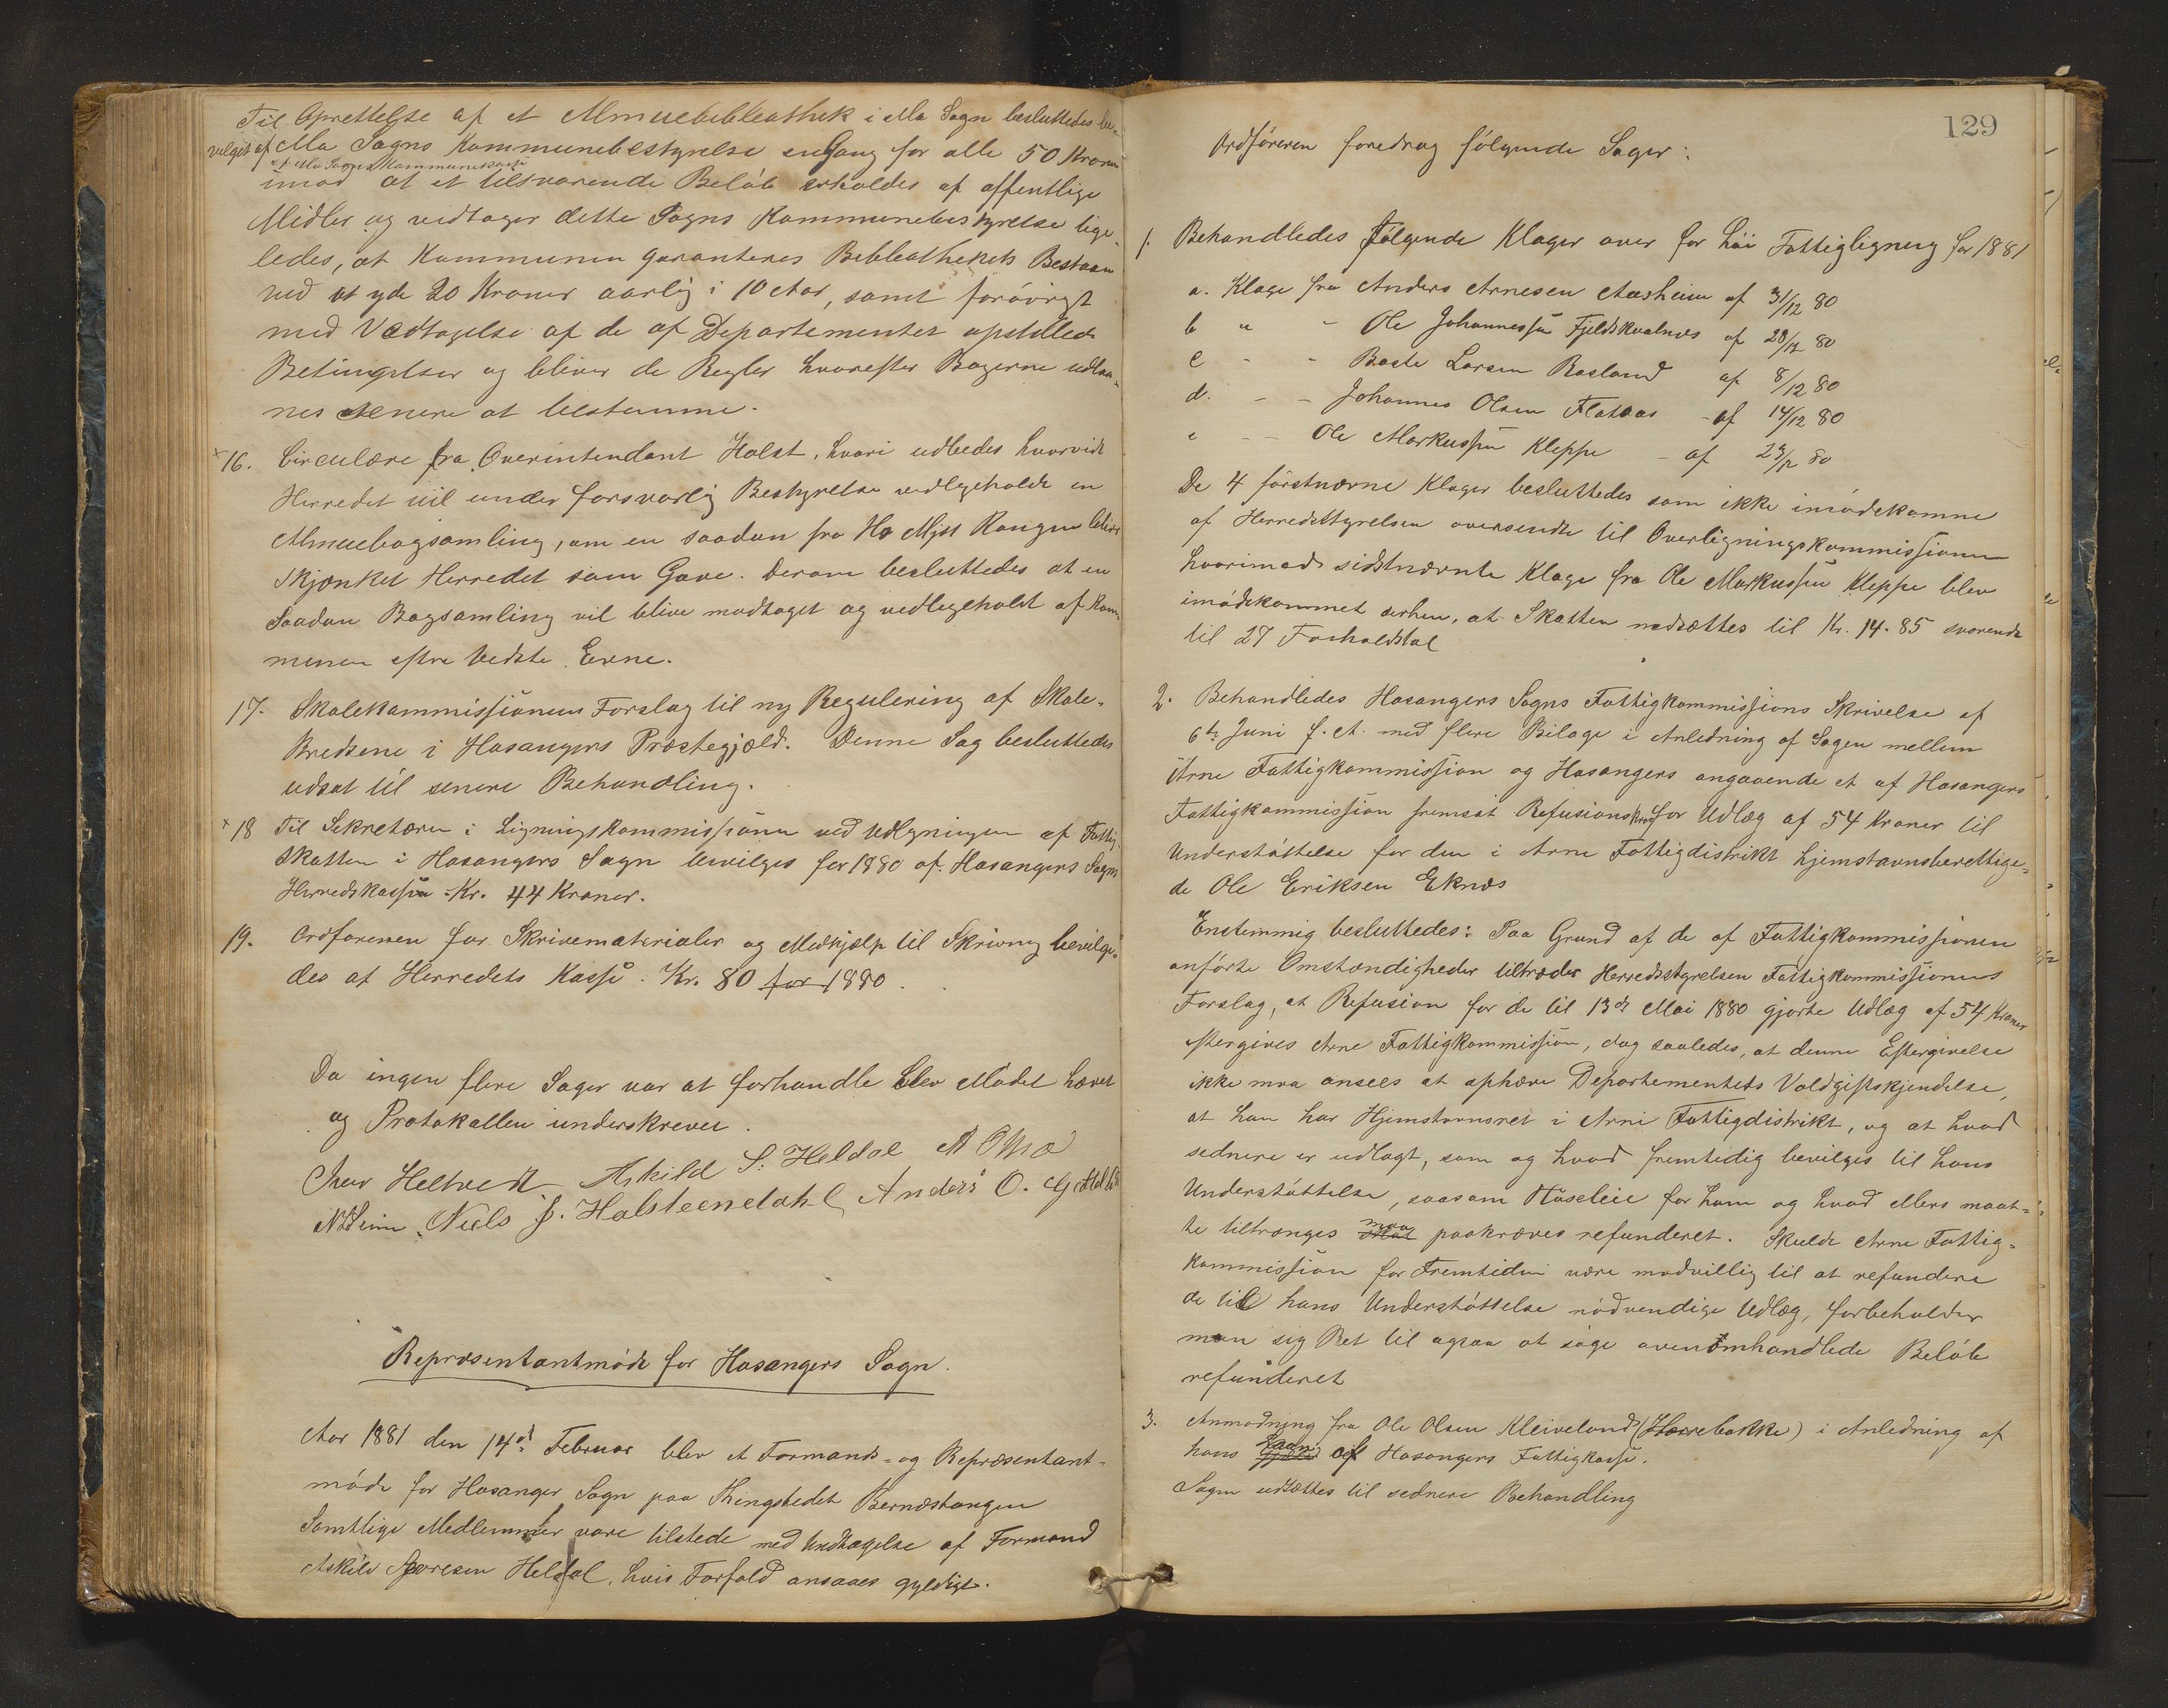 Til Oprettelse af et Almuebibleothek i Ma Sogn besluttedes be-
vilget af Ma Sogns Kommunebestyrelse engang for alle 50 Kroner
af Ma Sogns Kommunekasse
imod at et tilsvarende Beløb erholdes af offentlige
Midler og vedtager dette Sogns Kommunebestyrelse lige-
ledes, at Kommunen garanteres Bibleothekets Bestaaen
ved at yde 20 Kroner aarlig i 10 Aar, samt forøvrigt
med Vedtagelse af de af Departementet opstillede
Betingelser og bliver de Regler hvorefter Bøgerne udlaa-
nes senere at bestemme.
x 16. Circulære fra Overintendant Holst, hvori udbedes hvorvidt
Herredet vil under forsvarlig Bestyrelse vedlegeholde en
Almuebogsamling, om en saadan fra Hs Mjst Kongen bliver
skjænket Herredet som Gave. Derom besluttedes at en
Saadan Bogsamling vil blive modtaget og vedlegeholdt af Kom-
munen efter bedste Evne.
17. Skolekommissionens Forslag til ny Regulering af Skole-
Kredsene i Hosangers Præstegjæld. Denne Sag besluttedes
udsat til senere Behandling.
x 18 Til Sekretæren i Ligningskommissionen ved Udligningen af Fattig-
skatten i Hosangers Sogn bevilges for 1880 af Hosangers Sogns
Herredskasse Kr. 44 Kroner.
19. Ordføreren for Skrivematerialer og Medhjælp til Skrivning bevilge-
des af Herredets Kasse. Kr. 80 for 1880.
Da ingen flere Sager var at forhandle blev Mødet hævet
og Protokollen underskreven.
Iver Heltvedt Askild S. Heldal A Ohna
N Niels J. Halsteendahl Anders O.
Repræsentantmøde for Hosangers Sogn.
Aar 1881 den 14de Februar blev et Formands- og Repræsentant-
møde for Hosanger Sogn paa Thingstedet Bernæstangen
Samtlige Medlemmer vare tilstede med Undtagelse af Formand
Askild Sjoresen Heldal, hvis Forfald ansaaes gyldigt.
129
Ordføreren foredrog følgende Sager:
1. Behandledes følgende Klager over for høi Fattigligning for 1881
a. Klage fra Anders Arnesen Aasheim af 31/12 80
b " - Ole Johannessen Fjeldskvalnes af 28/12 80
c - - Baste Larsen Rosland af 8/12 80
d. - - Johannes Olsen Flataas - af 14/12 80
e - - Ole Markussen Kleppe - af 23/12 80
De 4 førstnævne Klager besluttedes som ikke imødekomne
af Herredsstyrelsen oversendte til Overligningskommissionen
hvorimod sidstnævnte Klage fra Ole Markussen Kleppe blev
imødekommet derhen, at Skatten nedsættes til Kr. 14.85 svarende
til 27 Forholdstal
2. Behandledes Hosangers Sogns Fattigkommissions Skrivelse af
6te Juni f. A. med flere Bilage i Anledning af Sagen mellem
Arne Fattigkommission og Hosangers angaaende et af Hosangers
Fattigkommission fremsat Refusionskrav for Udlæg af 54 Kroner til
Understøttelse for den i Arne Fattigdistrikt hjemstavnsberettige-
de Ole Eriksen Eknæs
Enstemmig besluttedes: Paa Grund af de af Fattigkommissionen
anførte Omstændigheder tiltræder Herredsstyrelsen Fattigkommissionens
Forslag, at Refusion for de til 13de Mai 1880 gjorte Udlæg af 54 Kroner
eftergives Arne Fattigkommission, dog saaledes, at denne Eftergivelse
ikke maa ansees at ophæve Departementets Voldgiftskjendelse,
at han har Hjemstavnsret i Arne Fattigdistrikt, og at hvad
sednere er udlagt, som og hvad fremtidig bevilges til hans
Understøttelse, saasom Husleie for ham og hvad ellers maat-
te tiltrænges maa paakræves refunderet. Skulde Arne Fattig-
kommission for Fremtiden være modvillig til at refundere
de til hans Understøttelse nødvendige Udlæg, forbeholder
man sig Ret til ogsaa at søge ovenomhandlede Beløb
refunderet
3. Anmodning fra Ole Olsen Kleiveland (Hærrebakke) i Anledning af
hans Laan af Hosangers Fattigkasse.
Sagen udsættes til sednere Behandling